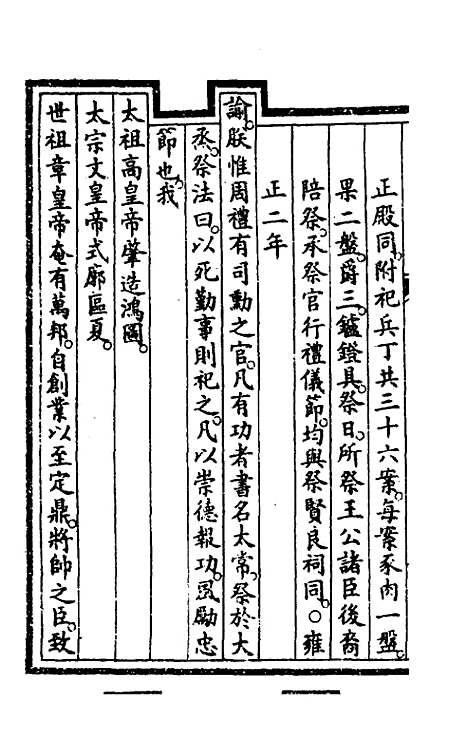 正殿同。附祀兵丁共三十六案。每案豕肉一盤。
果二盤。爵三。鑪鐙具。祭日。所祭王公諸臣後裔
陪祭。承祭官行禮儀節。均與祭賢良祠同。○雍
正二年
諭。朕惟周禮有司勳之官。凡有功者書名太常。祭於大
烝。祭法曰。以死勤事則祀之。凡以崇德報功。風勵忠
節也。我
太祖高皇帝肇造鴻圖。
太宗文皇帝式廓區夏。
世祖章皇帝奄有萬邦。自創業以至定鼎。將帥之臣。致